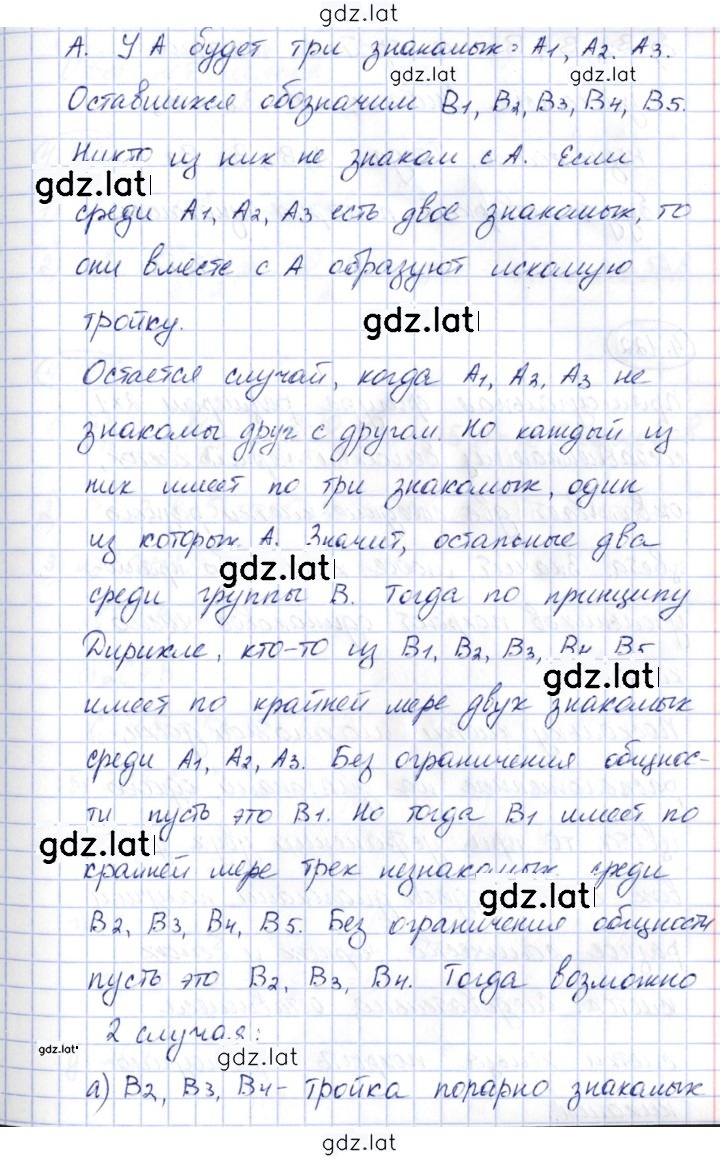 gdz.lat
А. У А будет три знакомых: А1, А2, А3.
gdz.lat
Оставшихся обозначим В1, В2, В3, В4, В5.
Никто из них не знаком с А. Если
gdz.lat
среди А1, А2, А3 есть двое знакомых, то
они вместе с А образуют искомую
тройку.
gdz.lat
Остается случай, когда А1, А2, А3 не
знакомы друг с другом. Но каждый из
них имеет по три знакомых, один
из которых А. Значит, остальные два
gdz.lat
среди группы В. Тогда по принципу
Дирихле, кто-то из В1, В2, В3, В4, В5
gdz.lat
имеет по крайней мере двух знакомых
среди А1, А2, А3. Без ограничения общнос-
ти пусть это В1. Но тогда В1 имеет по
gdz.lat
крайней мере трех незнакомых среди
gdz.lat
В2, В3, В4, В5. Без ограничения общности
пусть это В2, В3, В4. Тогда возможно
2 случая:
gdz.lat
gdz.lat
а) В2, В3, В4 - тройка попарно знакомых
gdz.lat